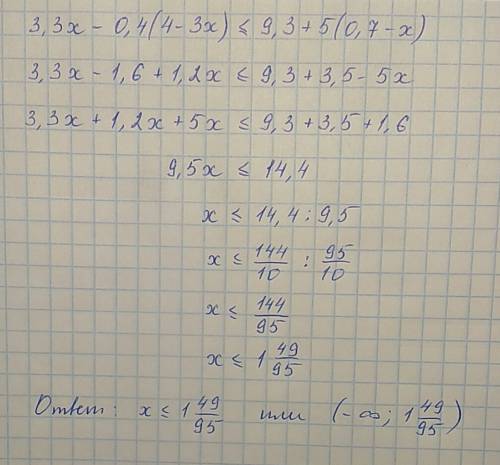 3,3x - 0,4(4-3x) ≤ 9,3 + 5(0,7-x)
3,3x - 1,6 + 1,2x ≤ 9,3 + 3,5 - 5x
3,3x + 1,2x + 5x ≤ 9,3 + 3,5 + 1,6
9,5x ≤ 14,4
x ≤ 14,4 : 9,5
x ≤ 144/10 : 95/10
x ≤ 144/95
x ≤ 1 49/95
Ответ: x ≤ 1 49/95 или (-∞; 1 49/95)